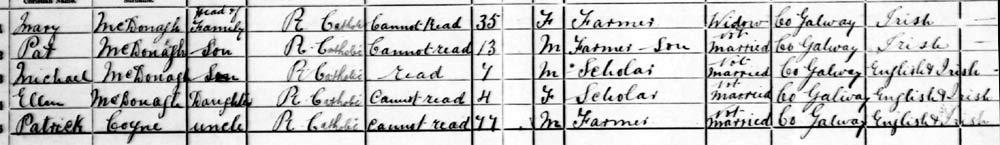 Mary McDonagh Head of Family R Catholic Cannot Read 35 F Farmer Widow Co Galway Irish
Pat McDonagh Son R Catholic Cannot read 13 M Farmer - Son Not married Co Galway Irish
Michael McDonagh Son R Catholic read 7 M Scholar Not married Co Galway English & Irish
Ellen McDonagh Daughter R Catholic Cannot read 4 F Scholar Not married Co Galway English & Irish
Patrick Coyne uncle R Catholic cannot read 77 M Farmer Not married Co Galway English & Irish